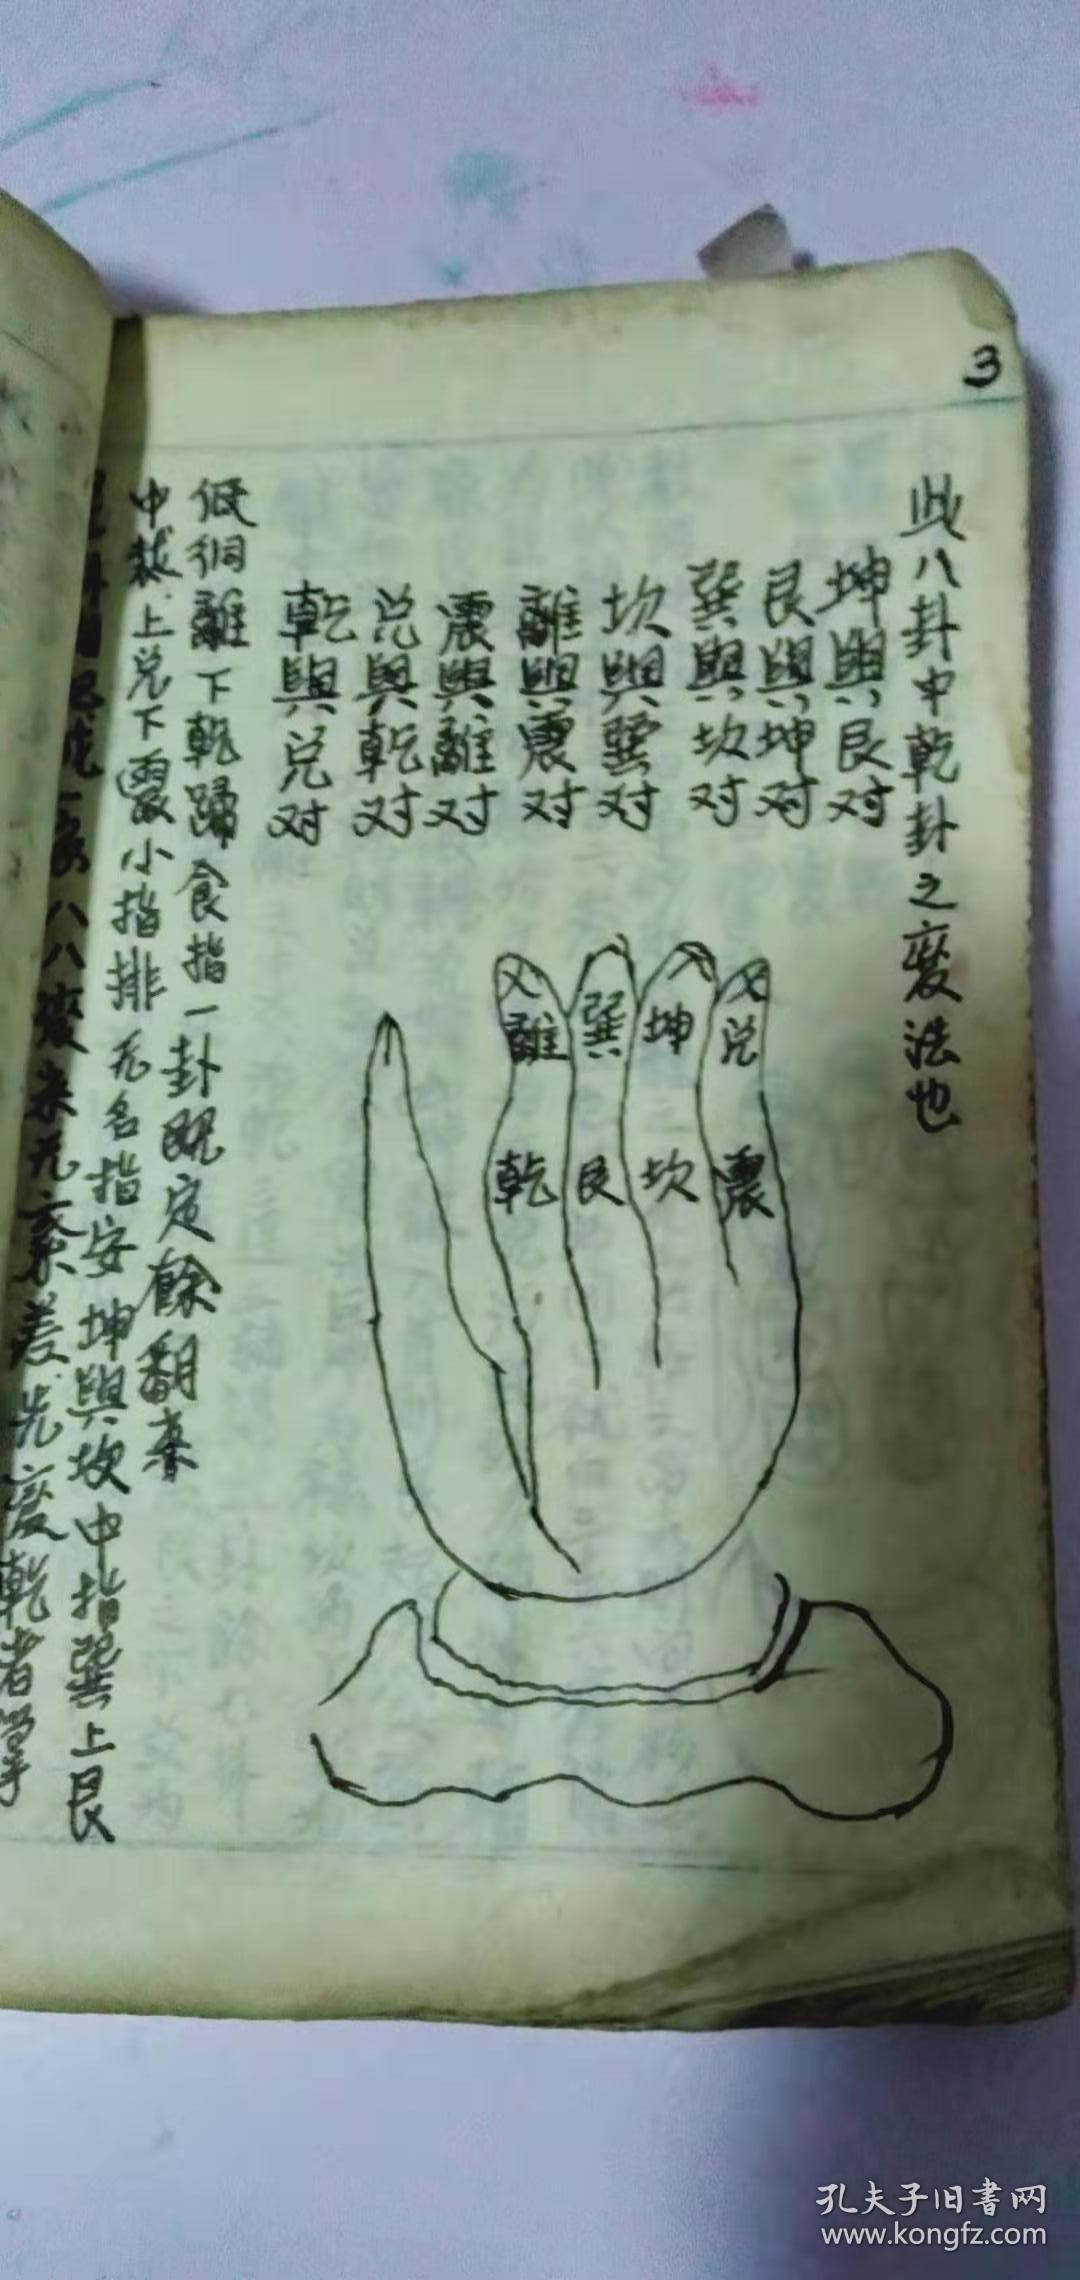 3
此八卦中乾卦之变法也
坤與艮对
艮與坤对
巽與坎对
坎與巽对
離與震对
震與離对
兑與乾对
乾與兑对
離
巽
坤
兑
乾
艮
坎
震
低徊離下乾歸食指一卦既定餘翻
中裁上兑下震小指排无名指安坤與坎中指巽上艮
八八变来无紊差先变乾者掌
孔夫子旧書网
www.kongfz.com